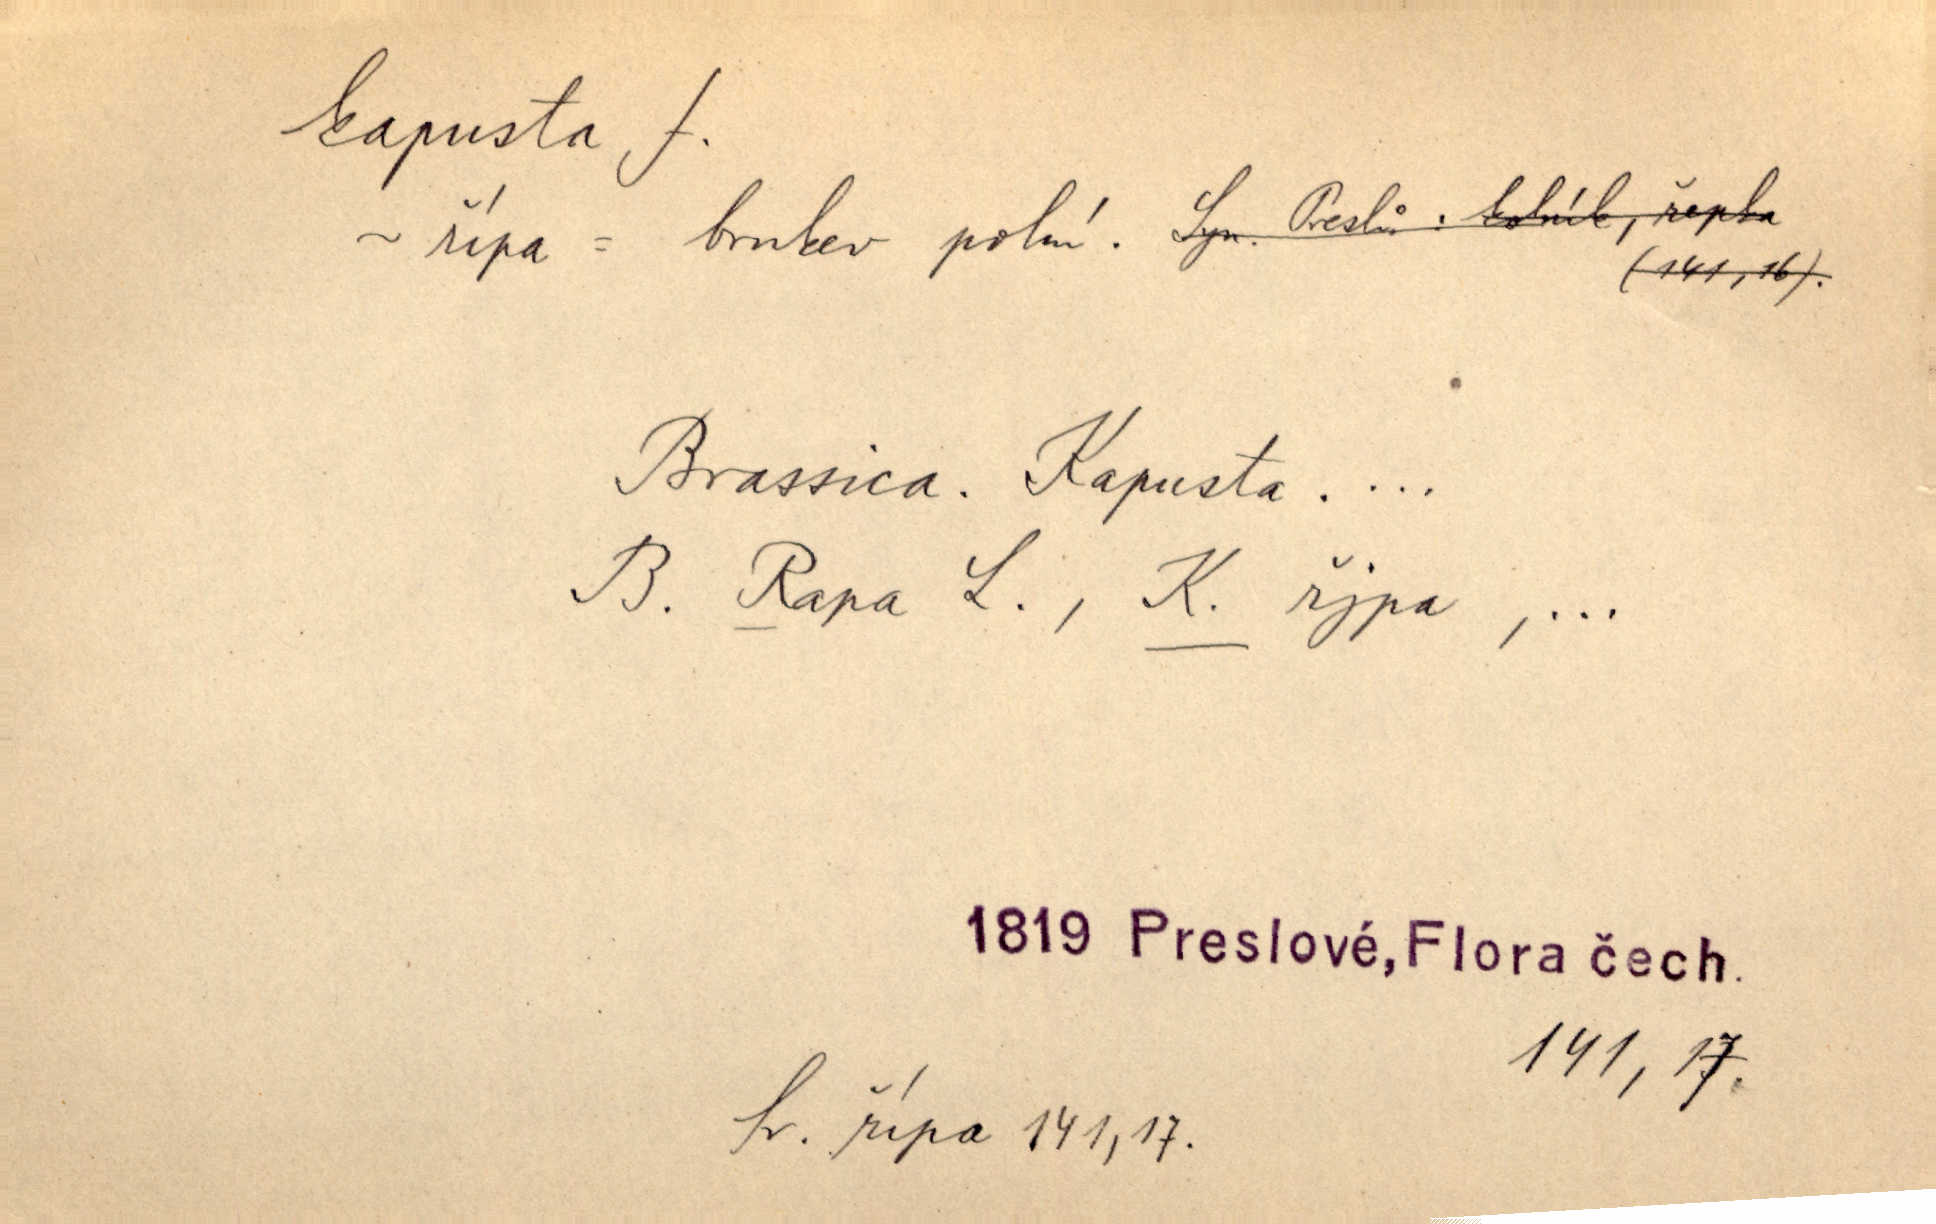 kapusta f.
~ řípa = brukev polní. Syn. Preslů: kolník, řepka
(141, 16).
Brassica. Kapusta. ...
B. Rapa L., K. řjpa, ...
1819 Preslové, Flora čech.
141, 17.
řípa 141, 17.